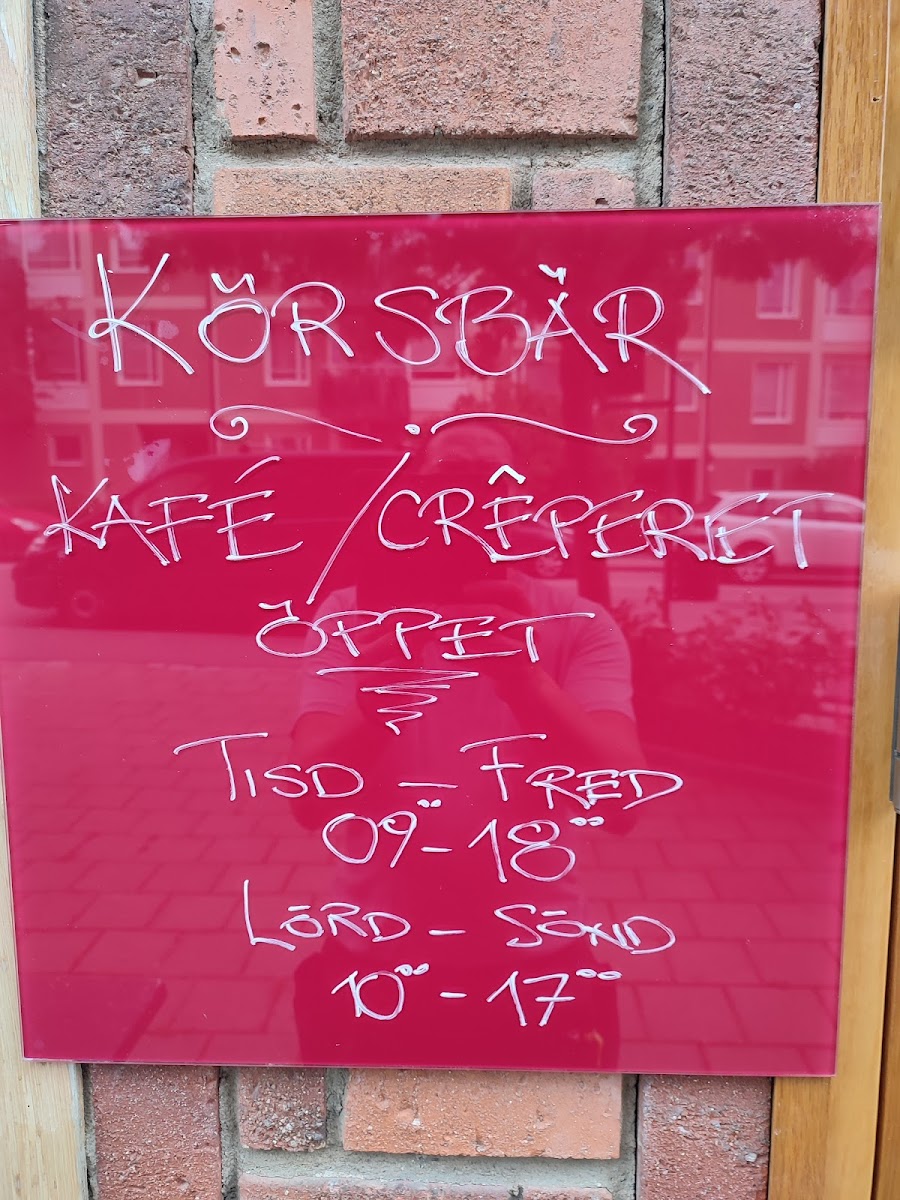 KÖRSBÄR
KAFÉ / CRÊPERIET
ÖPPET
TISD – FRED
09⁰⁰ – 18⁰⁰
LÖRD – SÖND
10⁰⁰ – 17⁰⁰